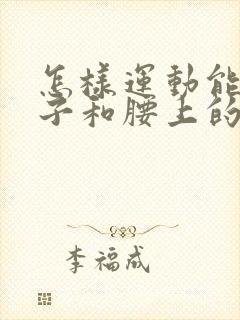 怎樣運動能
子和腰上的
李福成